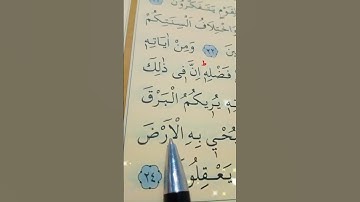 لِقَوْمٍ يَتَفَكَّرُونَ ﴿٢١﴾
وَاخْتِلَافُ اَلْسِنَتِكُمْ
﴿٢٢﴾ وَمِنْ اٰيَاتِهِ
فَضْلِهٖ اِنَّ فٖي ذٰلِكَ
يُرٖيكُمُ الْبَرْقَ
يُحْيٖ بِهِ الْاَرْضَ
يَعْقِلُونَ ﴿٢٤﴾